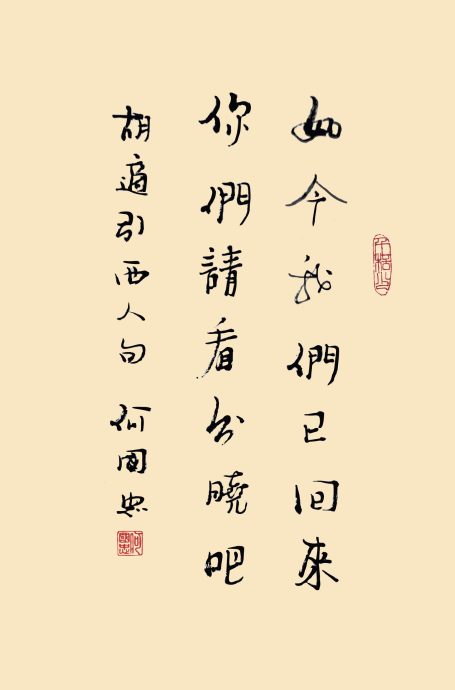 如今我們已回來
你們請看分曉吧
胡適引西人句 何國忠